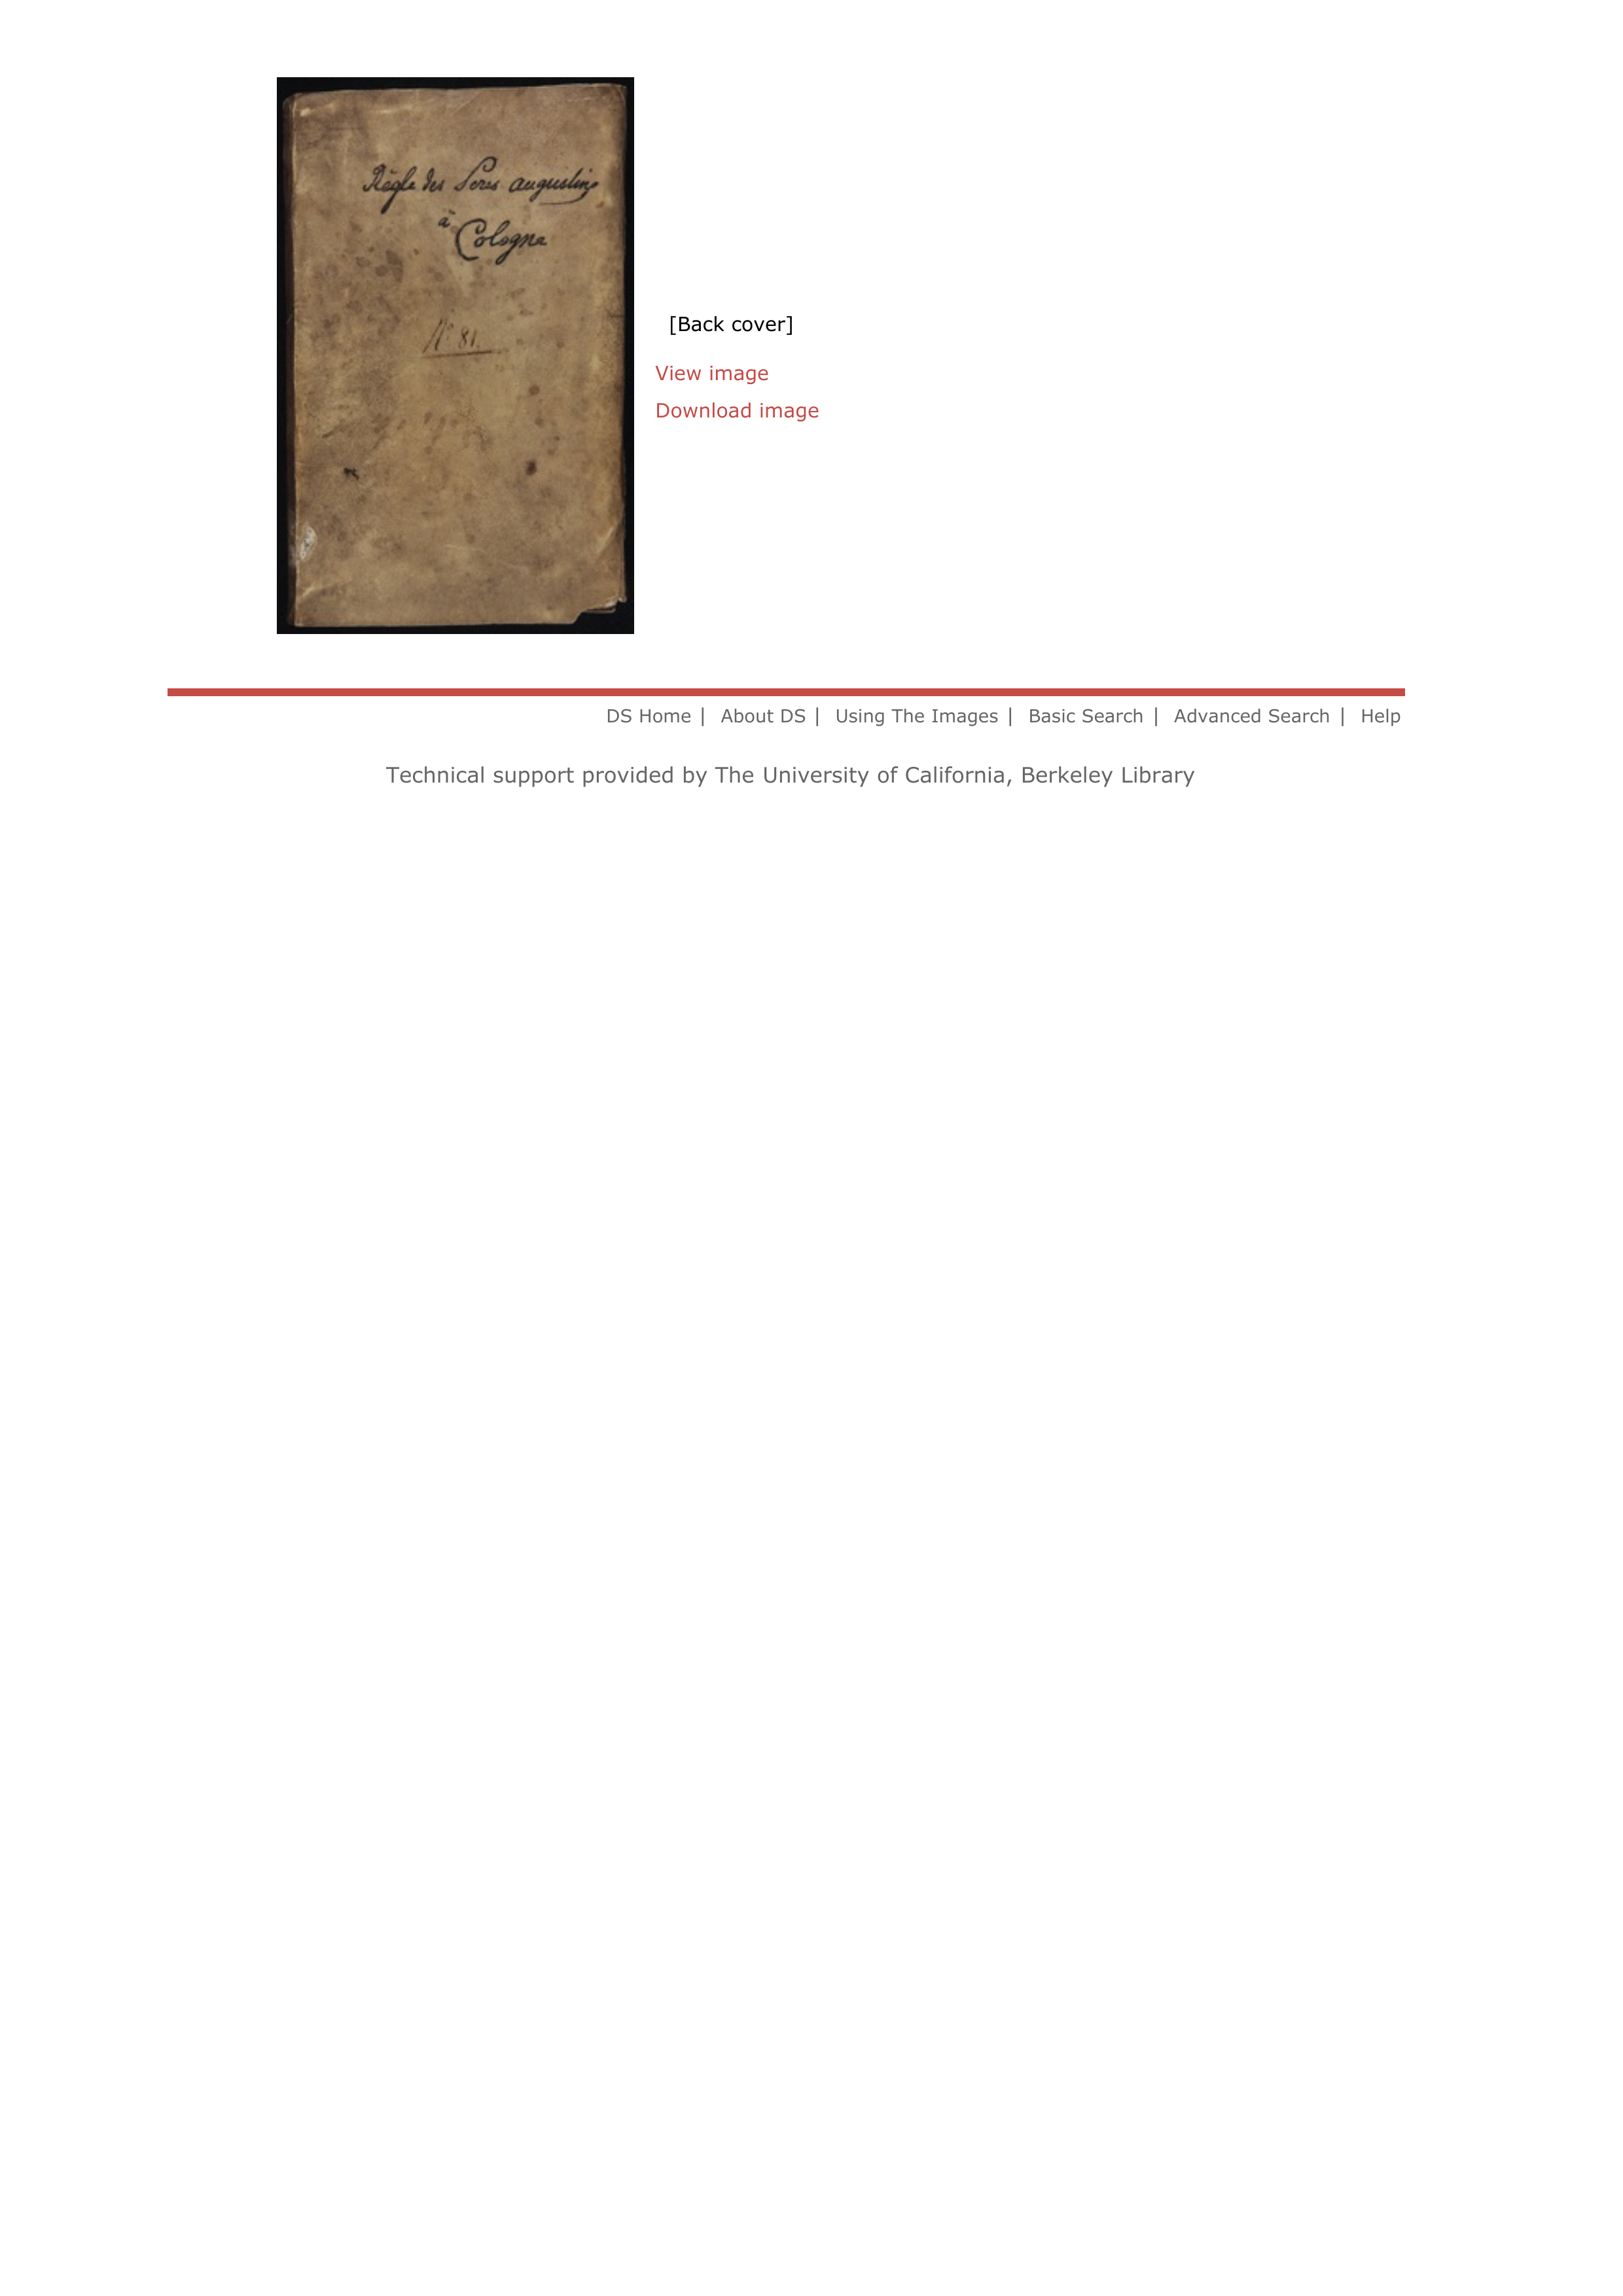 Règle des Peres augustins
à
Cologne
Nº 81.
[Back cover]
View image
Download image
DS Home | About DS | Using The Images | Basic Search | Advanced Search | Help
Technical support provided by The University of California, Berkeley Library